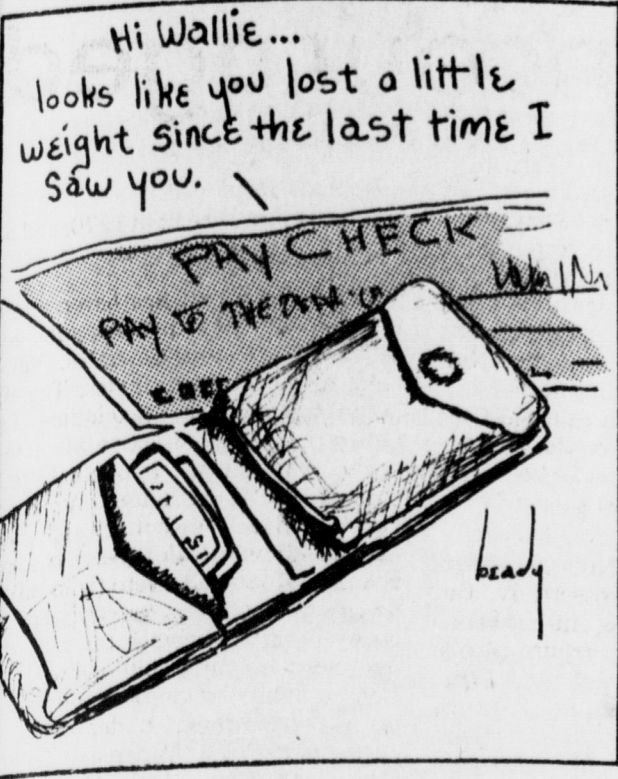 Hi Wallie...
looks like you lost a little
weight since the last time I
saw you.
PAY CHECK
PAY TO THE